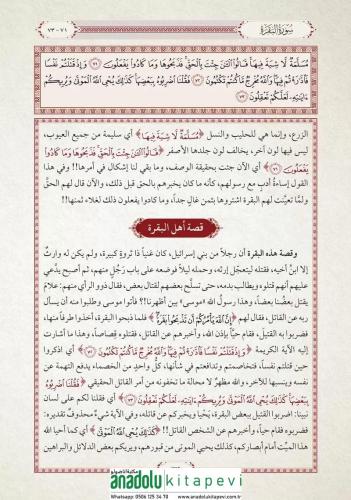 سُورَةُ البَقَرَة
٧١ - ٧٣
مُسَلَّمَةٌ لَّا شِيَةَ فِيهَا قَالُوا الْآنَ جِئْتَ بِالْحَقِّ فَذَبَحُوهَا وَمَا كَادُوا يَفْعَلُونَ ﴿٧١﴾ وَإِذْ قَتَلْتُمْ نَفْسًا
فَادَّارَأْتُمْ فِيهَا وَاللَّهُ مُخْرِجٌ مَّا كُنتُمْ تَكْتُمُونَ ﴿٧٢﴾ فَقُلْنَا اضْرِبُوهُ بِبَعْضِهَا كَذَلِكَ يُحْيِ اللَّهُ الْمَوْتَى وَيُرِيكُمْ
آيَاتِهِ لَعَلَّكُمْ تَعْقِلُونَ ﴿٧٣﴾
الزرع، وإنما هي للحليب والنسل ﴿مُسَلَّمَةٌ لَّا شِيَةَ فِيهَا﴾ أي سليمة من جميع العيوب،
ليس فيها لون آخر، يخالف لون جلدها الأصفر ﴿قَالُوا الْآنَ جِئْتَ بِالْحَقِّ فَذَبَحُوهَا وَمَا كَادُوا
يَفْعَلُونَ ﴿٧١﴾﴾ أي الآن جئت بحقيقة الوصف، وما بقي لنا إشكال في أمرها!! وفي هذا
القول إساءة أدبٍ مع رسولهم، كأنه ما كان يخبرهم بالحق قبل ذلك، والآن قال لهم الحقَّ
ولمَّا تعيَّنت لهم البقرة اشتروها بثمن غالٍ جداً، وما كادوا يفعلون ذلك لغلاء ثمنها!!
قصة أهل البقرة
وقصة هذه البقرة أن رجلاً من بني إسرائيل، كان غنياً ذا ثروةٍ كبيرة، ولم يكن له وارثٌ
إلا ابنُ أخيه، فقتله ليتعجَّل إرثه، وحمله ليلاً فوضعه على باب رَجُلٍ منهم، ثم أصبح يدَّعي
عليهم أنهم قتلوه ويطالب بدمه، حتى تسلَّح بعضهم لقتال بعض، فقال ذوو الرأي منهم: علامَ
يقتل بعضُنا بعضاً، وهذا رسولُ الله «موسى» بين أظهرنا؟! فأتوا موسى وطلبوا منه أن يسأل
ربه عن القاتل، فقال لهم ﴿إِنَّ اللَّهَ يَأْمُرُكُمْ أَن تَذْبَحُوا بَقَرَةً﴾ فلما ذبحوا البقرة، أخذوا طرفاً منها،
فضربوا به القتيل، فقام حيًّا بإذن الله، وأخبرهم عن القاتل، فقتلوه قِصاصاً، وهذا ما أشارت
إليه الآية الكريمة ﴿وَإِذْ قَتَلْتُمْ نَفْسًا فَادَّارَأْتُمْ فِيهَا وَاللَّهُ مُخْرِجٌ مَّا كُنتُمْ تَكْتُمُونَ ﴿٧٢﴾﴾ أي اذكروا
حين قتلتم نفساً، فتخاصمتم وتدافعتم في شأنها، كلُّ واحدٍ من الخصماء يدفع التهمة عن
نفسه وينسبها للآخر، والله مظهرٌ لا محالة ما تخفونه من أمر القاتل الحقيقي ﴿فَقُلْنَا اضْرِبُوهُ
بِبَعْضِهَا كَذَلِكَ يُحْيِ اللَّهُ الْمَوْتَى وَيُرِيكُمْ آيَاتِهِ لَعَلَّكُمْ تَعْقِلُونَ ﴿٧٣﴾﴾ أي فقلنا لكم على لسان
نبينا: اضربوا القتيل ببعض البقرة، يَحْيا ويخبركم عن قاتله، وفي الآية شيءٌ محذوفٌ تقديره:
فضربوه فقام حياً، وأخبرهم عن الشخص القاتل!! ﴿كَذَلِكَ يُحْيِ اللَّهُ الْمَوْتَى﴾ أي كما أحيا الله
هذا الميِّت أمام أبصاركم، كذلك يحيي الموتى من قبورهم، ويريكم بعض الدلائل والبراهين
مكتبة الأناضول
anadolukitapevi
Whatsapp: 0506 125 34 70 www.anadolukitapevi.com